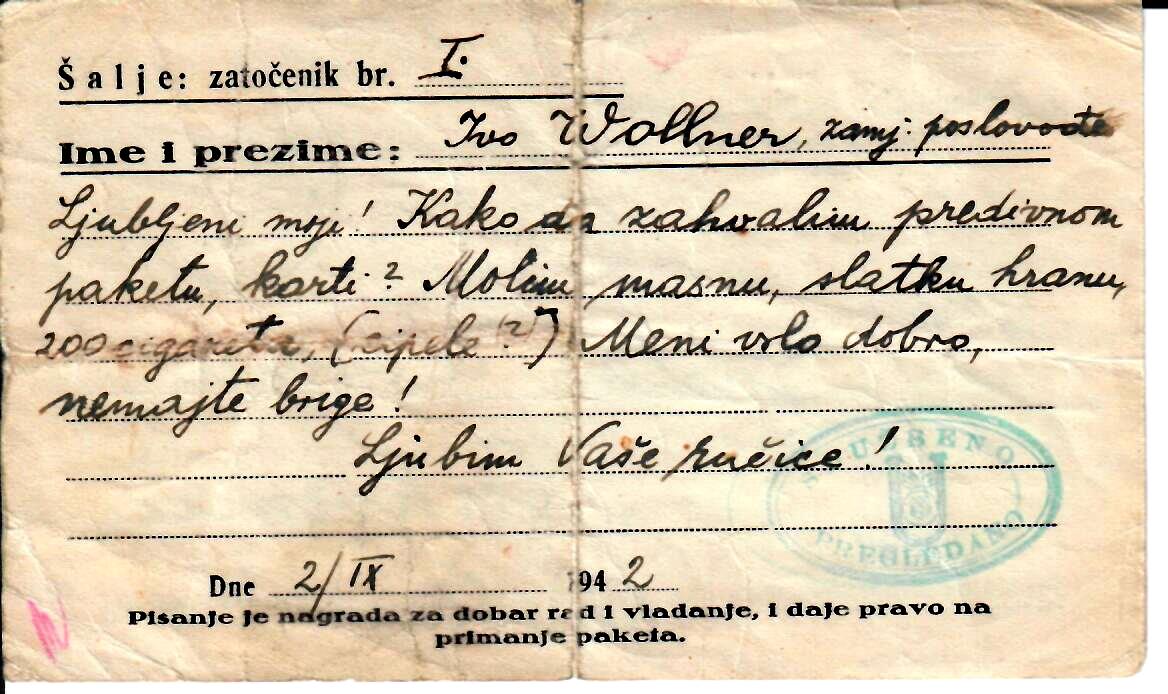 Šalje: zatočenik br. I.
Ime i prezime: Ivo Wollner, zamj. poslovođe
Ljubljeni moji! Kako da zahvalim predivnom
paketu, karti? Molim masnu, slatku hranu,
200 cigareta, (cipele?) Meni vrlo dobro,
nemajte brige!
Ljubim Vaše ručice!
SLUŽBENO
PREGLEDANO
Dne 2/IX 1942
Pisanje je nagrada za dobar rad i vladanje, i daje pravo na
primanje paketa.